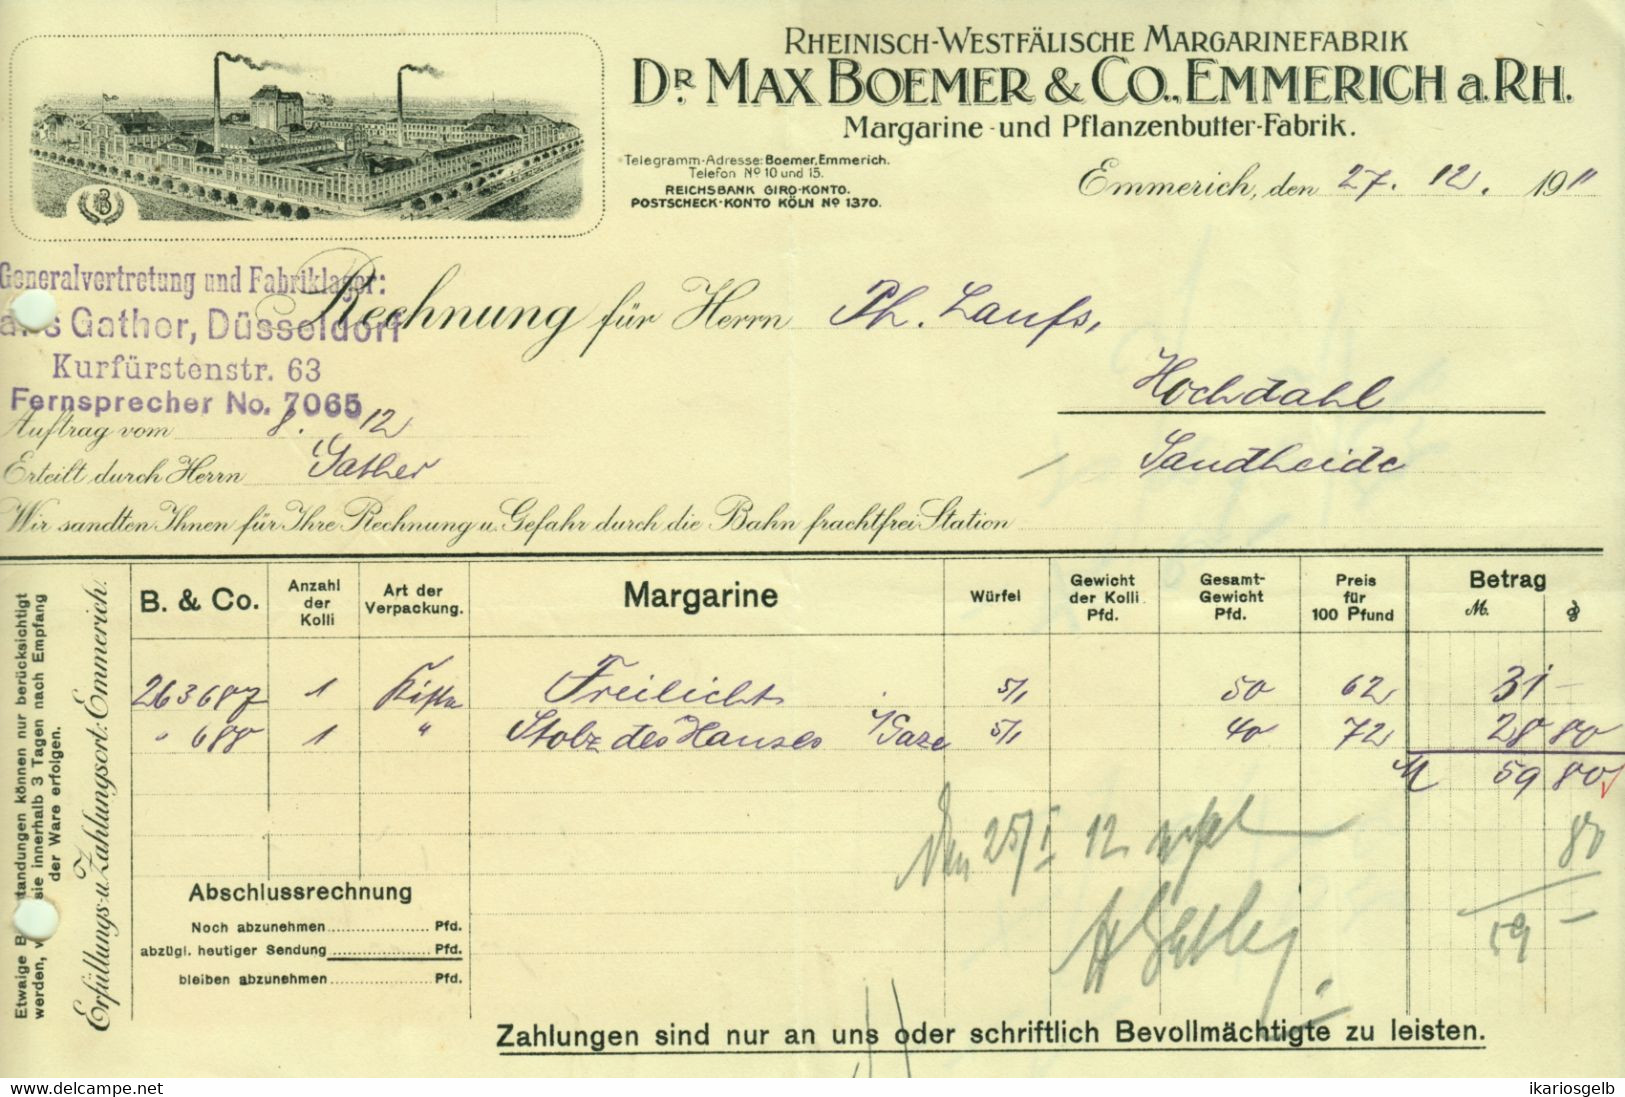 RHEINISCH-WESTFÄLISCHE MARGARINEFABRIK
DR. MAX BOEMER & CO., EMMERICH a. RH.
Margarine- und Pflanzenbutter-Fabrik.
Telegramm-Adresse: Boemer, Emmerich.
Telefon No 10 und 15.
REICHSBANK GIRO-KONTO.
POSTSCHECK-KONTO KÖLN No 1370.
Emmerich, den 27. 12. 1911
B
Generalvertretung und Fabriklager:
Gather, Düsseldorf
Kurfürstenstr. 63
Fernsprecher No. 7065
Rechnung für Herrn Ph. Laufs,
Hochdahl
Sandheide
Auftrag vom 8. 12
Erteilt durch Herrn Gather
Wir sandten Ihnen für Ihre Rechnung u. Gefahr durch die Bahn frachtfrei Station
B. & Co. Anzahl der Kolli Art der Verpackung. Margarine Würfel Gewicht der Kolli Pfd. Gesamt-Gewicht Pfd. Preis für 100 Pfund Betrag M. ₰
263687 1 Kiste Freilicht 5/1 50 62 31 –
" 688 1 " Stolz des Hauses 1/Gaze 5/1 40 72 28 80
M 59 80
80
59 –
25/I 12
Abschlussrechnung
Noch abzunehmen Pfd.
abzügl. heutiger Sendung Pfd.
bleiben abzunehmen Pfd.
Zahlungen sind nur an uns oder schriftlich Bevollmächtigte zu leisten.
Erfüllungs- u. Zahlungsort: Emmerich.
Etwaige können nur berücksichtigt
werden, sie innerhalb 3 Tagen nach Empfang
der Ware erfolgen.
www.delcampe.net
ikariosgelb